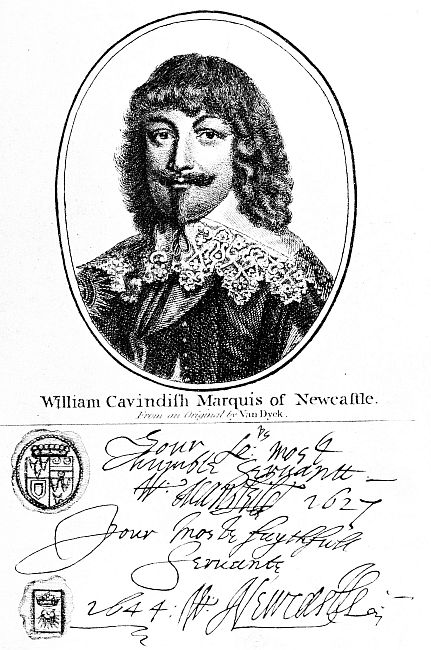 William Cavindiſh Marquis of Newcaſtle.
From an Original by Van Dyck.
Your Lo:ps most
humble Servant
W.
1627
Your moste faythfull
Servante
1644: W: Newcastle